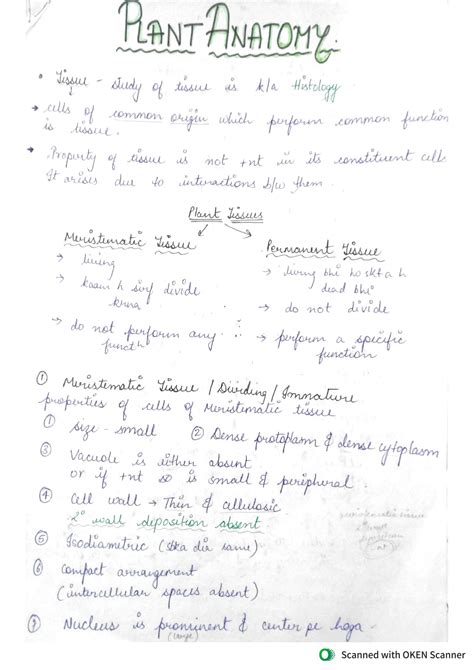 PLANT ANATOMY.
• Tissue - study of tissue is k/a Histology
→ cells of common origin which perform common function
is tissue.
→ Property of tissue is not +nt in its constituent cells
It arises due to interactions b/w them.
Plant Tissues
Meristematic Tissue
→ living
→ kaam h sirf divide
krna
→ do not perform any
functn
Permanent Tissue
→ living bhi ho skta h
dead bhi
→ do not divide
∴ → perform a specific
function
① Meristematic Tissue / Dividing / Immature
properties of cells of Meristematic tissue
① size - small ② Dense protoplasm & dense cytoplasm
③ Vacuole is either absent
or if +nt so is small & peripheral.
④ Cell wall → Thin & cellulosic
2° wall deposition absent
⑤ Isodiametric (iska dia same)
⑥ compact arrangement
(intercellular spaces absent)
Nucleus is prominent & center pe hoga.
(large)
Scanned with OKEN Scanner